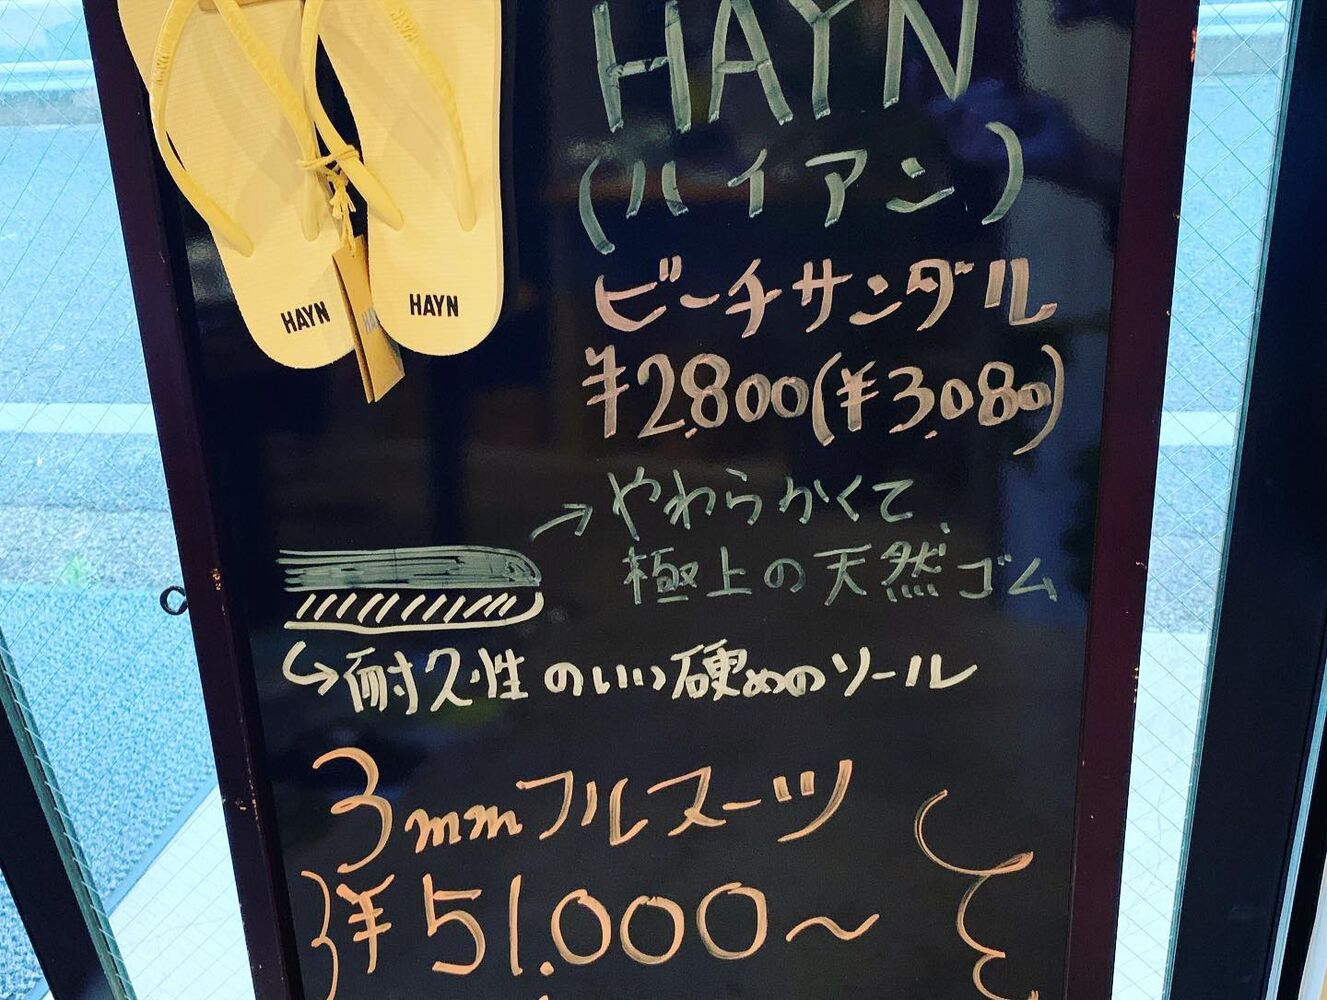 HAYN
(ハイアン)
ビーチサンダル
¥2,800(¥3,080)
HAYN
HAYN
→やわらかくて、
極上の天然ゴム
↪耐久性のいい硬めのソール
3mmフルスーツ
¥51,000～